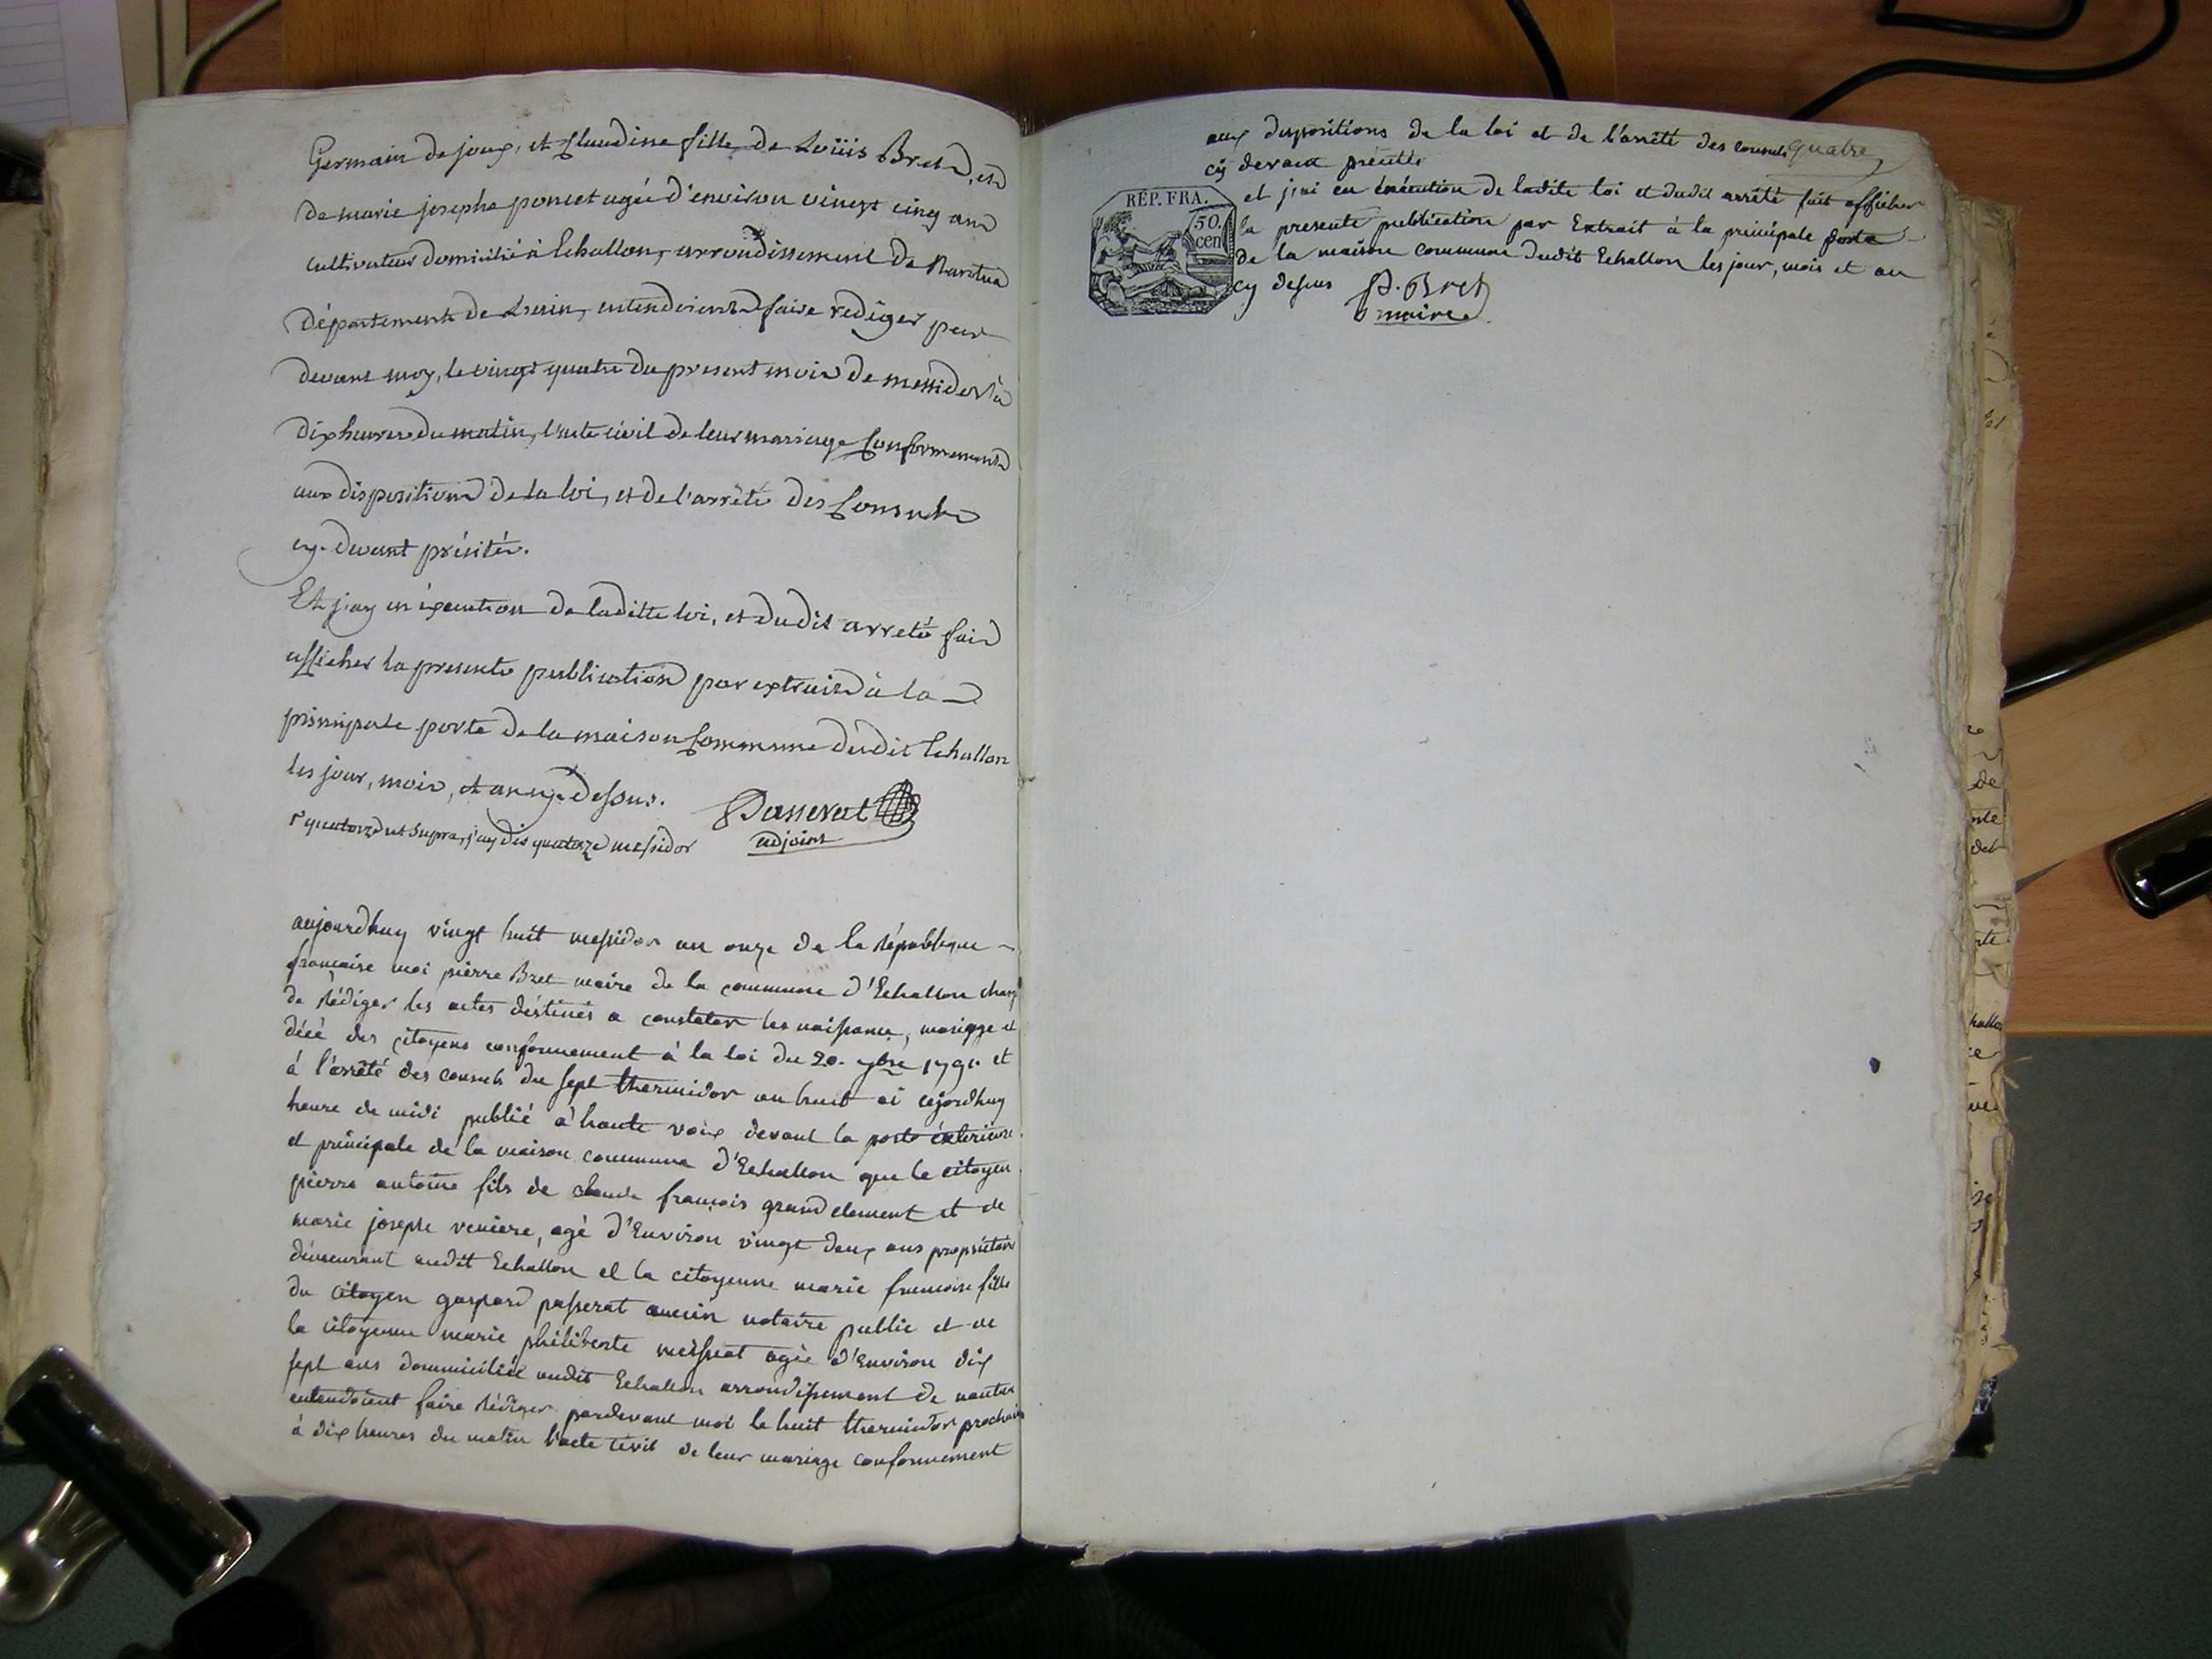 Germain de joux, et Claudine fille de Loüis Bret, et
de marie josephe poncet agée d'environ vingt cinq ans
cultivateur domicilié à Echallon, arrondissement de Nantua
département de L'ain, entendoient faire rediger par
devant moy, le vingt quatre du present mois de messidor à
dix heures du matin, l'acte civil de leur mariage Conformement
aux dispositions de la loi, et de l'arrêté des Consuls
cy-devant précités.
Et j'ay en éxecution de laditte loi, et dudit arreté fait
afficher la presente publication par extrait à la
principale porte de la maison Commune dudit Echallon
les jour, mois, et an cy dessus.
Passerat
adjoint
quatorze ut supra, j'ay dis quatorze messidor
aujourdhuy vingt huit messidor an onze de la République
française moi pierre Bret maire de la commune d'Echallon chargé
de Rédiger les actes déstinés a constater les naissance, mariage et
décé des citoyens conformement à la loi du 20. 7bre 1791 et
à l'arrêté des consuls du sept thermidor an huit ai cejordhuy
heure de midi publié à haute voix devant la porte éxterieure
et principale de la maison commune d'Echallon que le citoyen
pierre antoine fils de claude françois grandclement et de
marie joseph veniere, agé d'Environ vingt deux ans propriétaire
démeurant audit Echallon et la citoyenne marie francoise fille
du citoyen gaspard passerat ancien notaire public et de
la citoyenne marie philiberte messiat agée d'Environ dix
sept ans dommiciliée audit Echallon arrondissement de nantua
entendoient faire Rédiger pardevant moi le huit thermidor prochain
à dix heures du matin l'acte civil de leur mariage conformement
quatre
aux dispositions de la loi et de l'arrêté des consuls
cy devant précité
et j'ai en éxécution de ladite loi et dudit arrêté fait afficher
la presente publication par Extrait à la principale porte
de la maison commune dudit Echallon les jour, mois et an
cy dessus P. Bret
maire
RÉP. FRA.
50.
cen